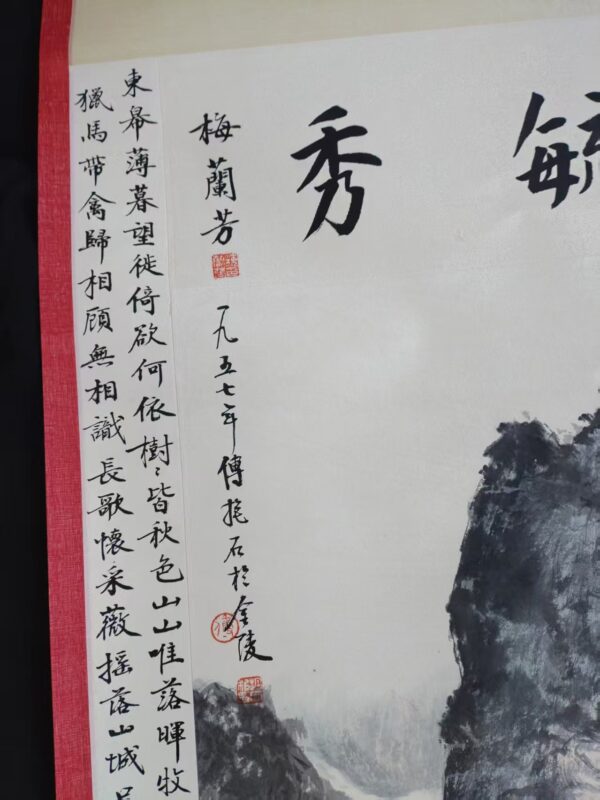 毓秀
梅蘭芳
一九五七年傅抱石於金陵
東皋薄暮望徙倚欲何依樹〻皆秋色山山唯落暉牧
獵馬帶禽歸相顧無相識長歌懷采薇搖落山城